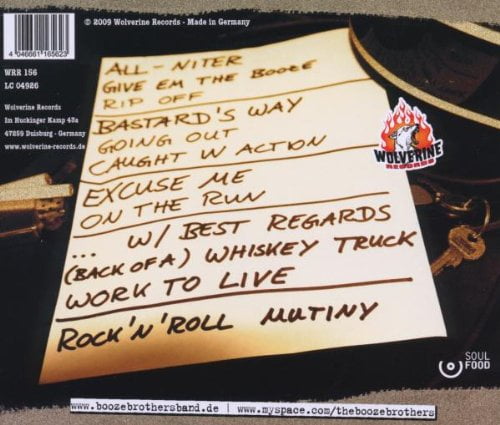 © 2009 Wolverine Records - Made in Germany
4 046661 165623
WRR 156
LC 04926
Wolverine Records
Im Huckinger Kamp 43a
47259 Duisburg - Germany
www.wolverine-records.de
ALL-NITER
GIVE EM THE BOOZE
RIP OFF
BASTARD'S WAY
GOING OUT
CAUGHT IN ACTION
EXCUSE ME
ON THE RUN
... W/ BEST REGARDS
(BACK OF A) WHISKEY TRUCK
WORK TO LIVE
ROCK'N'ROLL MUTINY
WOLVERINE
RECORDS
SOUL
FOOD
www.boozebrothersband.de | www.myspace.com/theboozebrothers